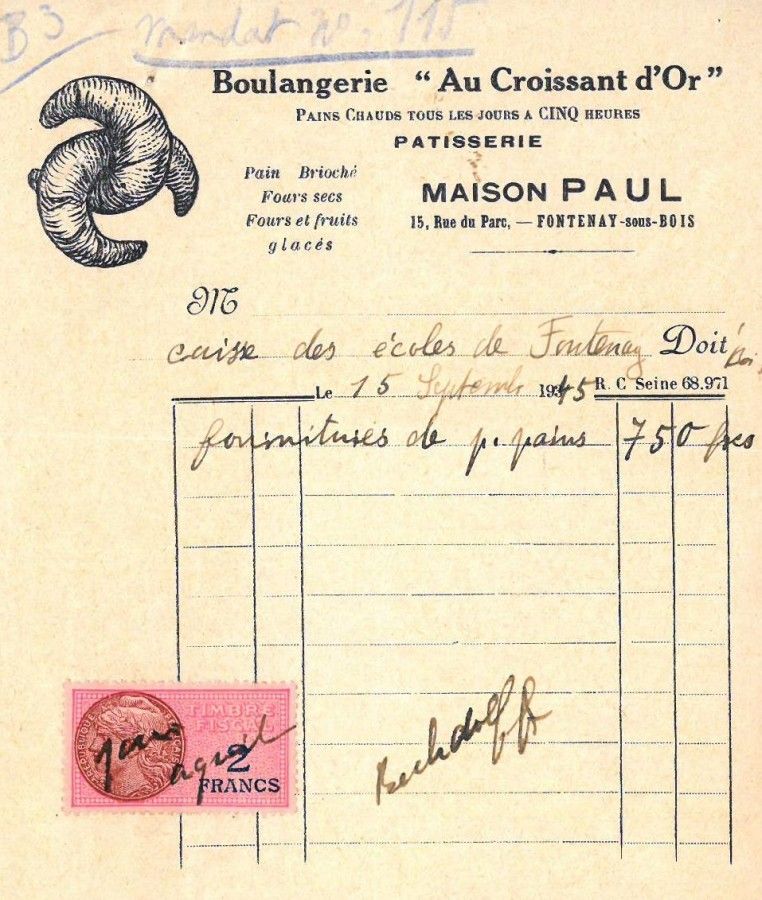 B3 mandat No. 115
Boulangerie "Au Croissant d'Or"
PAINS CHAUDS TOUS LES JOURS A CINQ HEURES
PATISSERIE
Pain Brioché
Fours secs
Fours et fruits
glacés
MAISON PAUL
15, Rue du Parc, — FONTENAY-sous-BOIS
M
caisse des écoles de Fontenay Doit
Le 15 Septembre 1945 R. C Seine 68.971
fournitures de p. pains 750 frcs
TIMBRE
FISCAL
2
FRANCS
pour
aquit